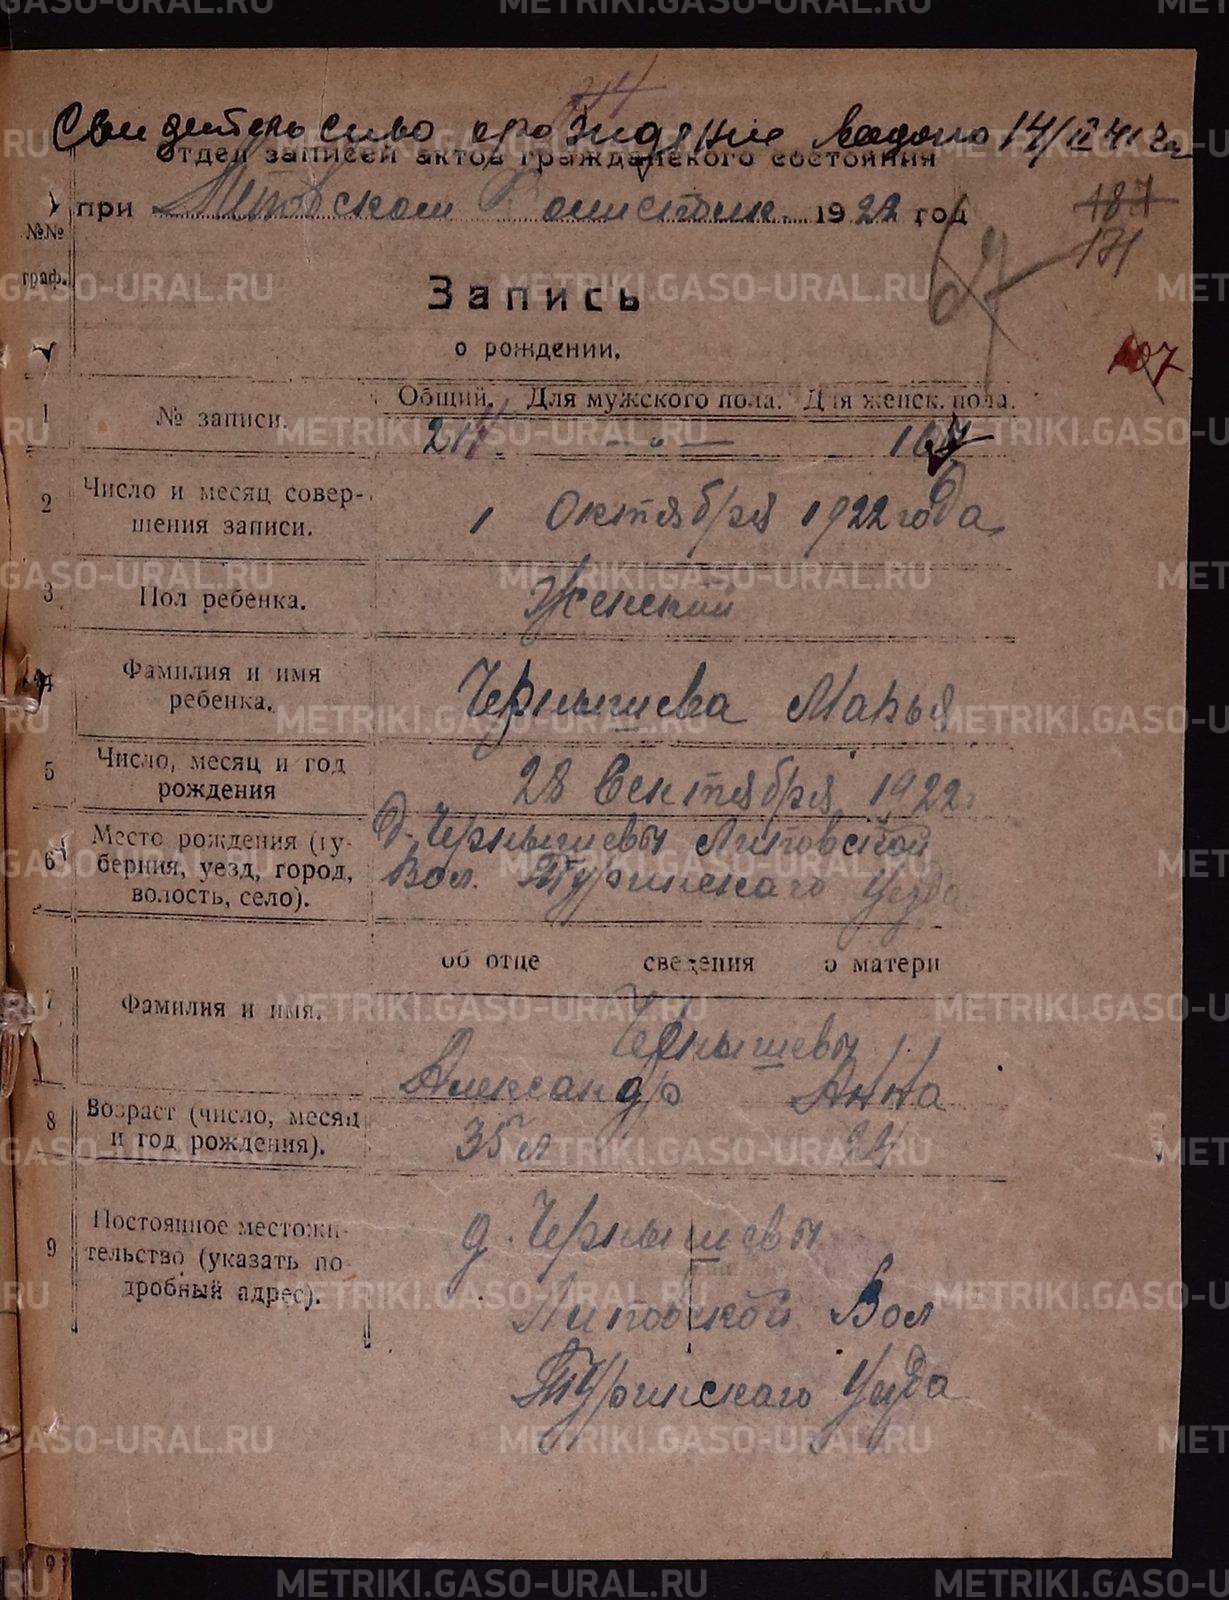 Свидетельство о рождение выдано 14/II 41 г.
отдел записей актов гражданского состояния
при Липовском Волисполк. 1922 год
187
171
№№ граф.
Запись
о рождении.
107
Общий. Для мужского пола. Для женск. пола.
1 № записи. 217 — " — 107
2 Число и месяц совер-
шения записи. 1 Октября 1922 года
3 Пол ребенка. Женский
4 Фамилия и имя
ребенка. Чернышева Марья
5 Число, месяц и год
рождения 28 Сентября 1922
6 Место рождения (гу-
берния, уезд, город,
волость, село). д. Чернышевы Липовской
Вол. Туринскаго Уезда
об отце сведения о матери
7 Фамилия и имя. Чернышевы
Александр Анна
8 Возраст (число, месяц
и год рождения). 35 л 24
9 Постоянное местожи-
тельство (указать по-
дробный адрес). д. Чернышевы
Липовской Вол
Туринскаго Уезда
9
METRIKI.GASO-URAL.RU